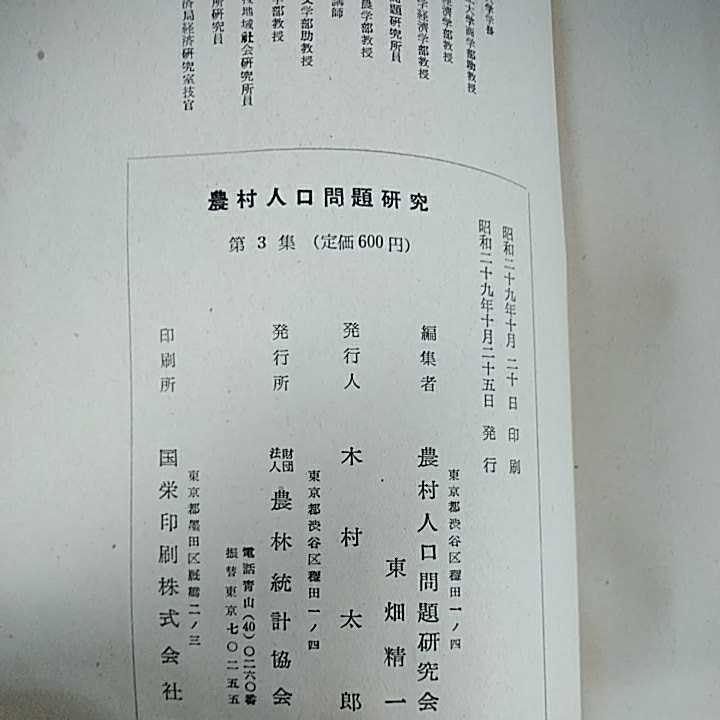 大学商学部助教授
経済学部教授
学経済学部教授
問題研究所所員
農学部教授
講師
文学部助教授
学部教授
地域社会研究所員
所研究員
済局経済研究室技官
農村人口問題研究
第3集（定価600円）
昭和二十九年十月二十日印刷
昭和二十九年十月二十五日発行
編集者
東京都渋谷区穏田一ノ四
農村人口問題研究会
東畑精一
発行人
木村太郎
発行所
東京都渋谷区穏田一ノ四
財団法人農林統計協会
電話青山(40)〇二六〇番
振替東京七〇二五五
印刷所
東京都墨田区厩橋二ノ三
国栄印刷株式会社